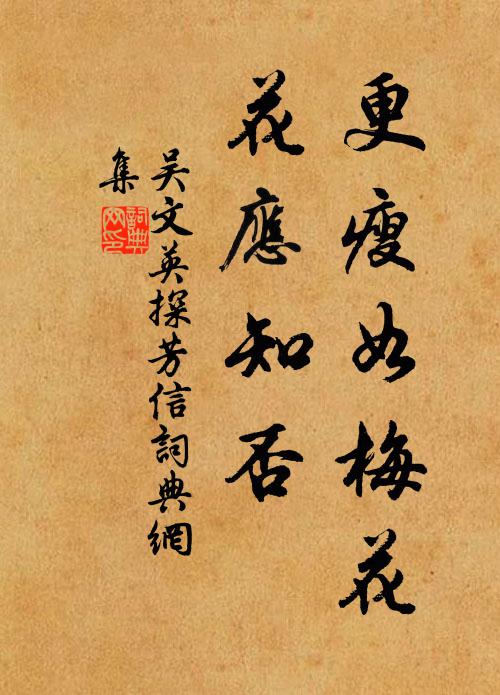 更瘦如梅花
花應知否
吳文英探芳信詞典網
集
詞典網印